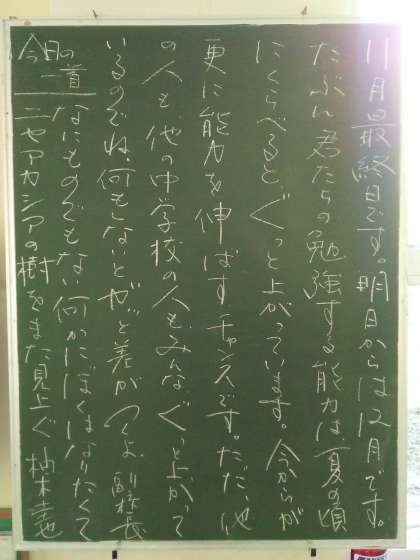 11月最終日です。明日からは12月です。
たぶん君たちの勉強する能力は、夏の頃
にくらべると、ぐっと上がっています。今からが
更に能力を伸ばすチャンスです。ただ、他
の人も、他の中学校の人も、みんなぐっと上がって
いるのでね、何もしないとガッと差がつくよ。副校長
今日の一首
なにものでもない何かにぼくはなりたくて
ニセアカシアの樹をまた見上ぐ 柚木